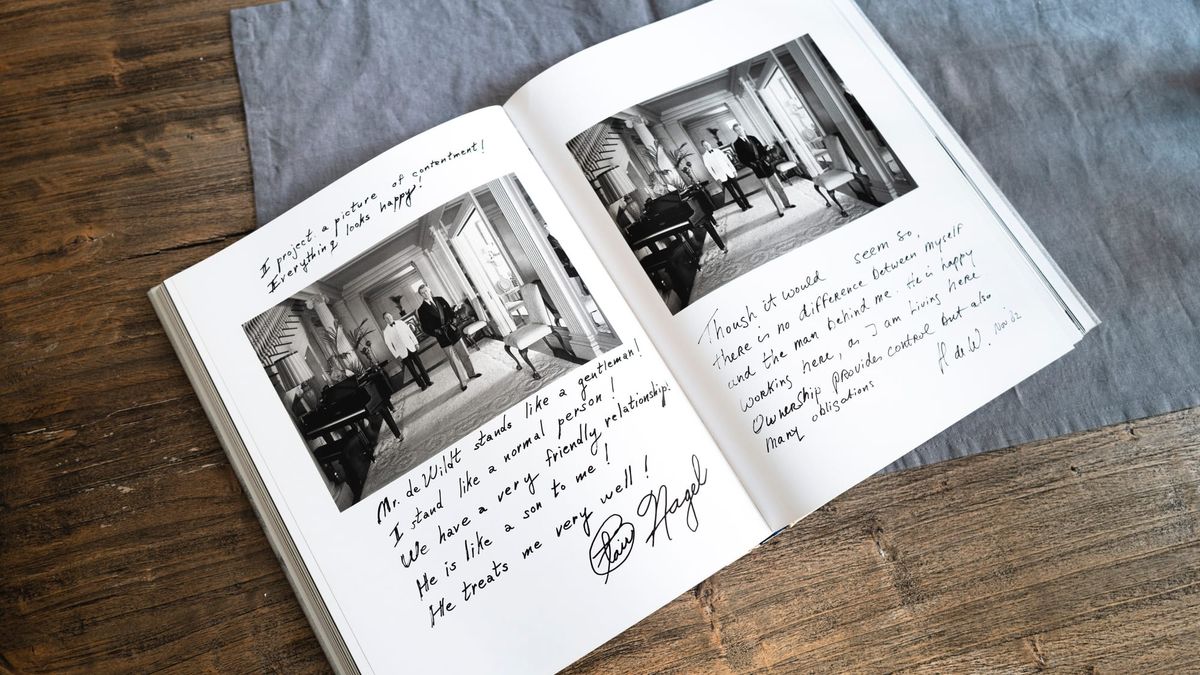 I project a picture of contentment!
Everything looks happy!
Mr. de Wildt stands like a gentleman!
I stand like a normal person!
We have a very friendly relationship!
He is like a son to me!
He treats me very well!
Nagel
Though it would seem so,
there is no difference between myself
and the man behind me. He is happy
working here, as I am living here.
Ownership provides control but also
many obligations
H de W. Nov. 82